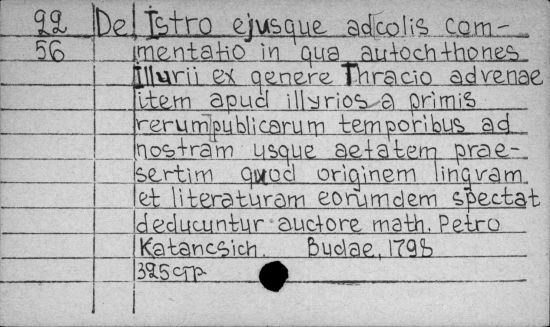 22 De Istro ejusque adcolis com-
56 mentatio in qua autochthones
Illurii ex genere Thracio advenae
item apud illyrios a primis
rerum publicarum temporibus ad
nostram usque aetatem prae-
sertim quod originem lingvam
et literaturam eorumdem spectat
deducuntur auctore math. Petro
Katancsich. Budae, 1798
325 стр.